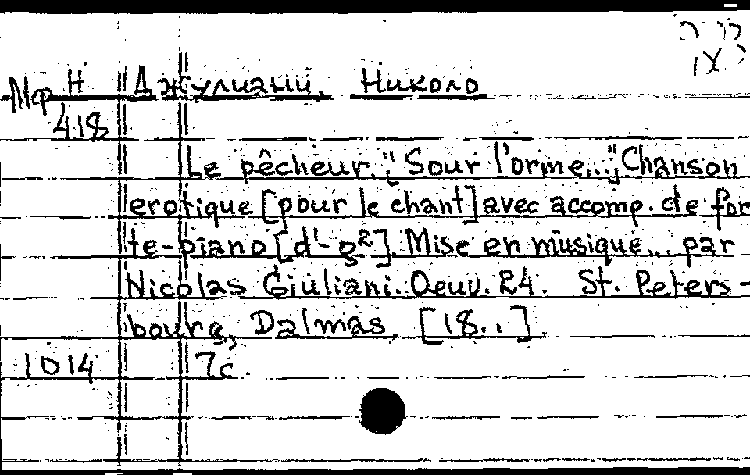 Мср Н Джулиани, Николо
418
Le pêcheur. "Sour l'orme..." Chanson
erotique [pour le chant] avec accomp. de for
te-piano [d¹-g²]. Mise en musique... par
Nicolas Giuliani. Oeuv. 24. St. Peters-
bourg, Dalmas, [18..].
1014 7с.